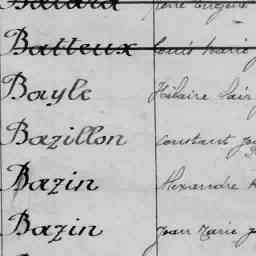 Balard
Batteux Louis Marie
Bayle Hilaire
Bazillon Constant
Bazin Alexandre
Bazin Jean Marie